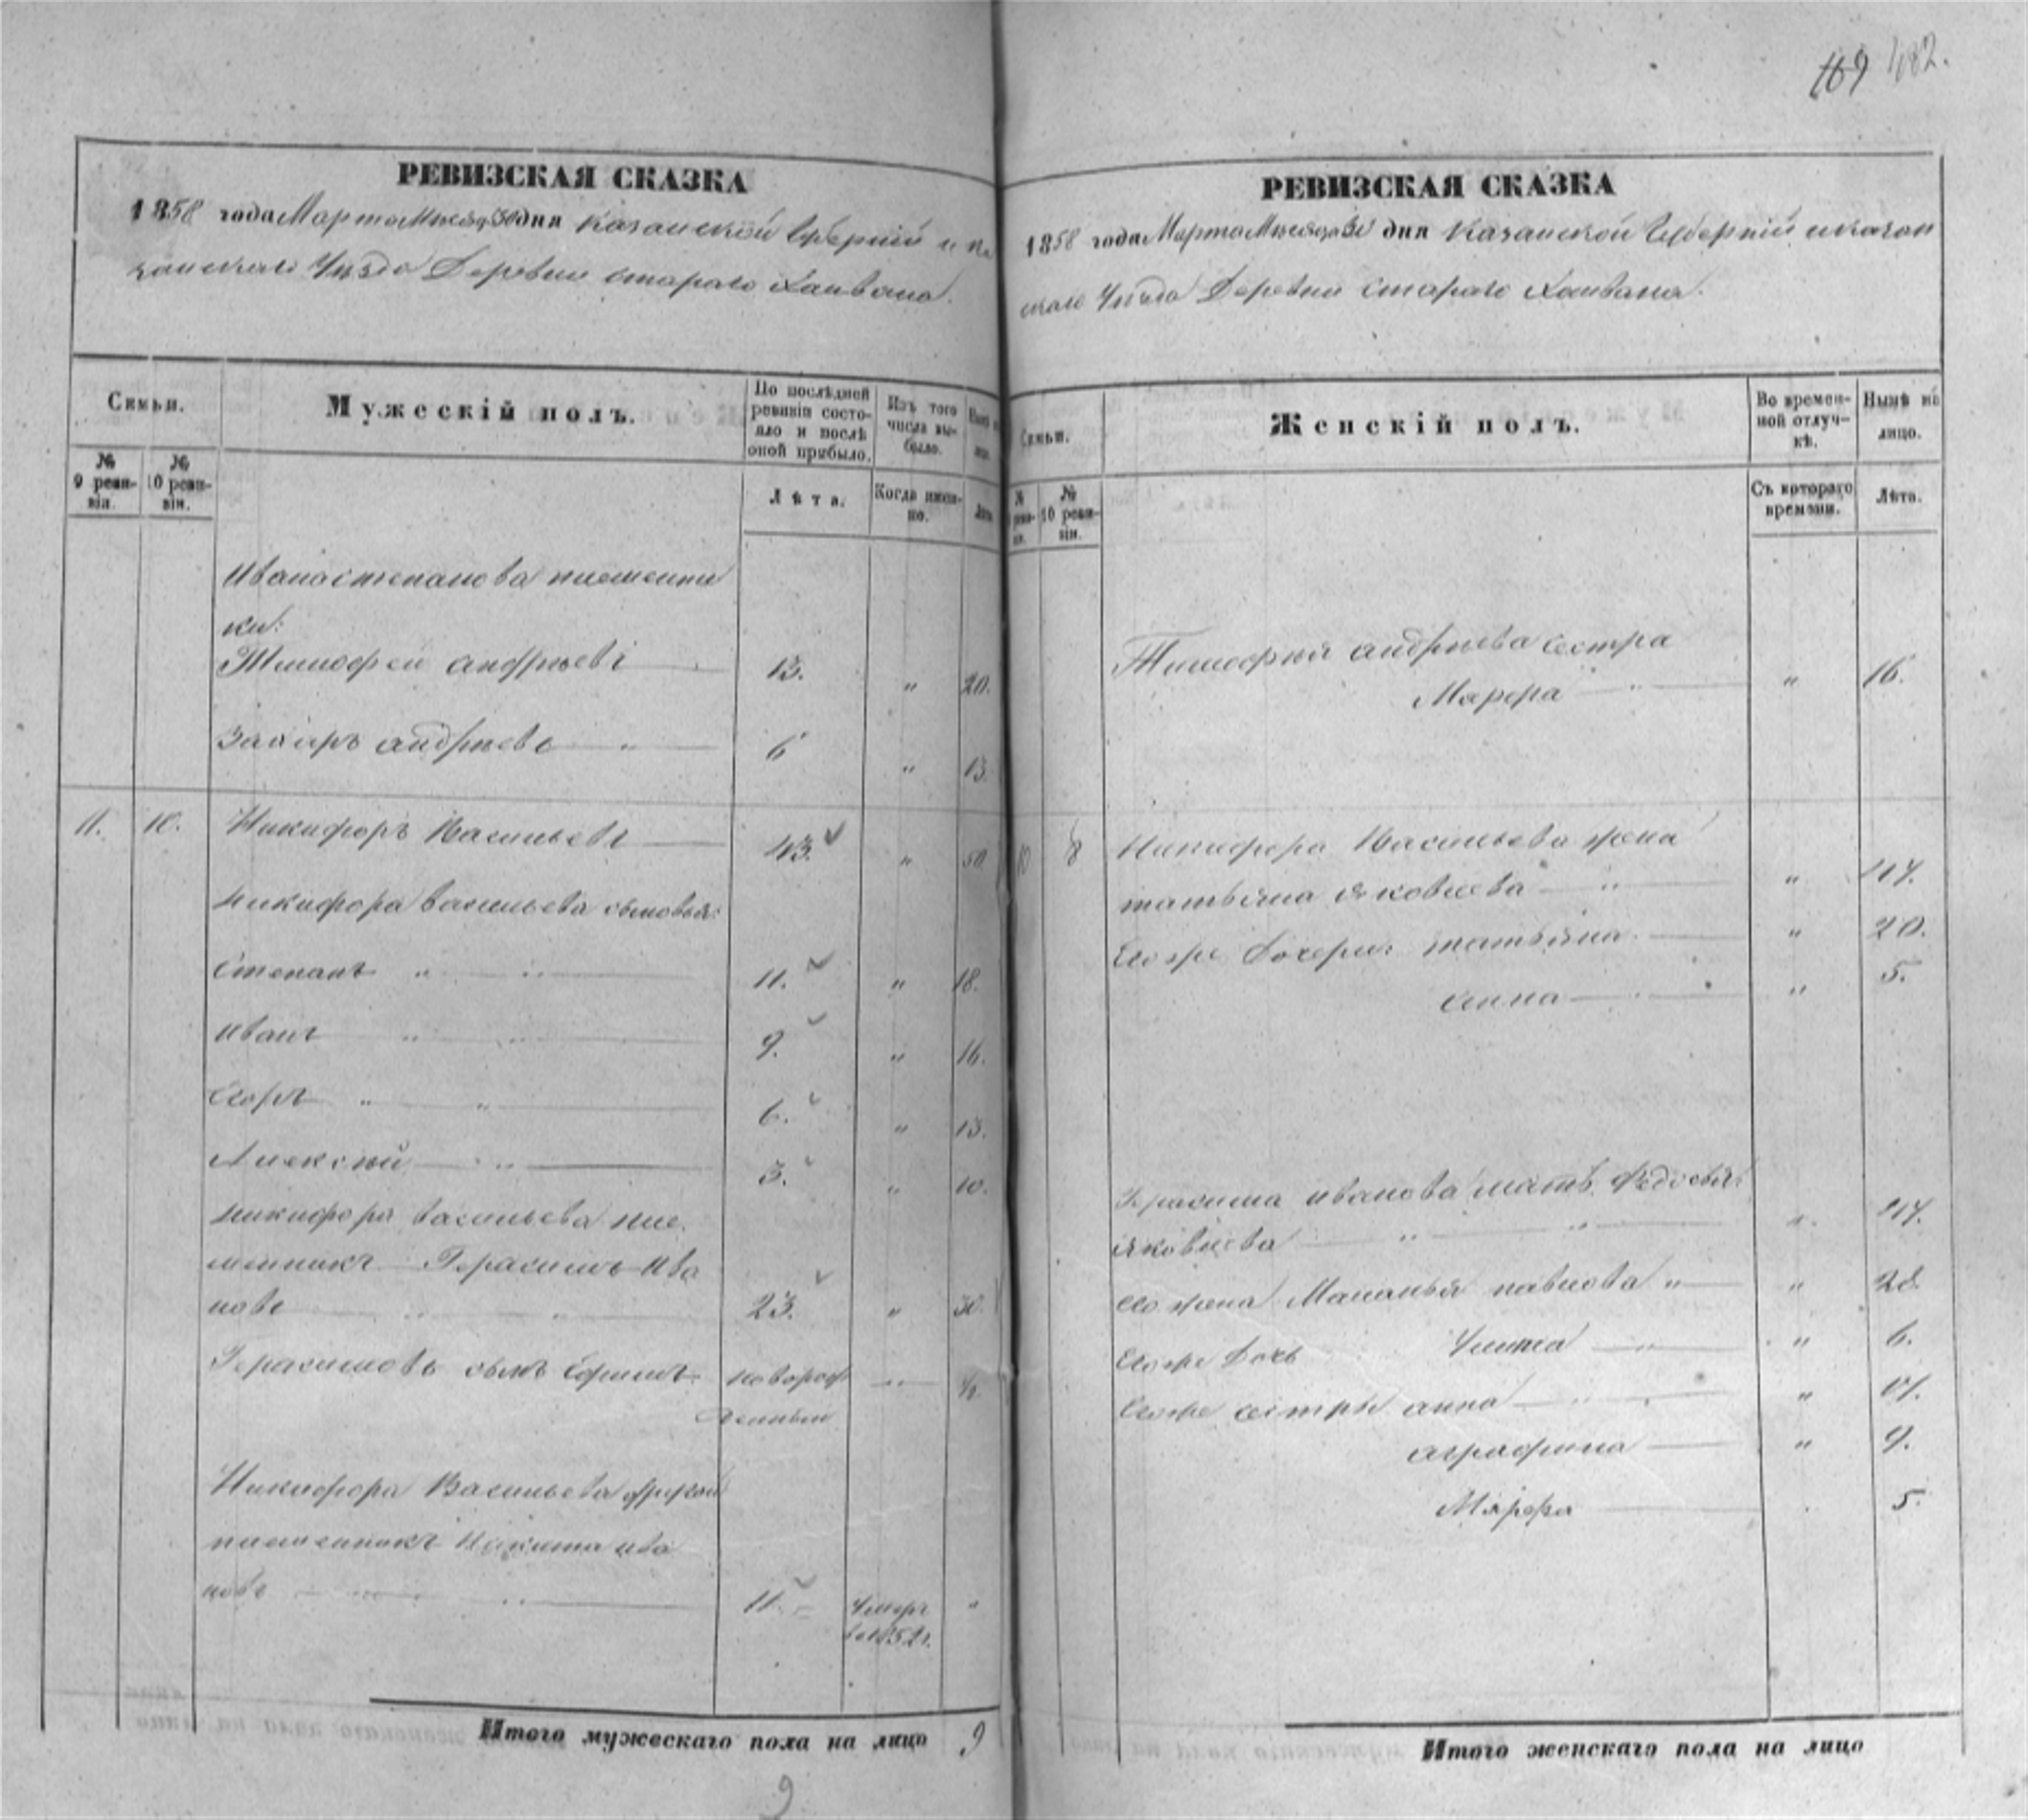 169 482.
РЕВИЗСКАЯ СКАЗКА
1858 года Марта Месяца 30 дня Казанской Губернии и Ка
занскаго Уезда Деревни Стараго
Семьи.
Мужескій полъ.
По послѣдней ревизіи состояло и послѣ оной прибыло.
Изъ того числа выбыло.
№ 9 ревизіи.
№ 10 ревизіи.
Лѣта.
Когда именно.
Лѣта.
Ивана Степанова племенни
ки:
Тимофей Андреевъ 13. " 20.
Захаръ Андреевъ " 6 " 13.
11. 10. Никифоръ Васильевъ 43. " 50
Никифора Васильева сыновья:
Степанъ " " 11. " 18.
Иванъ " " 9. " 16.
Егоръ " " 6. " 13.
Алексей " 3. " 10.
Никифора Васильева пле
менникъ Герасимъ Ива
новъ " " 23. " 30.
Герасимовъ сынъ Ефимъ новорож " ½
денный
Никифора Васильева другой
племенникъ Никита Ива
новъ 11. Умеръ "
въ 1852 г.
Итого мужескаго пола на лицо 9
9
РЕВИЗСКАЯ СКАЗКА
1858 года Марта Месяца дня Казанской Губерніи и Казан
скаго Уезда Деревни Стараго
Семьи.
Женскій полъ.
Во временной отлучкѣ.
Нынѣ на лицо.
№ 10 ревизіи.
Съ котораго времени.
Лѣта.
Тимофея Андреева сестра
Марфа " " 16.
Никифора Васильева жена
Татьяна Яковлева " " 47.
Егоже дочери: Татьяна " 20.
Анна " 5.
Герасима Иванова мать Федосья
Яковлева " " " 47.
Его жена Маланья Павлова " " 28.
Егоже дочь " 6.
Егоже сестры Анна "
Аграфина " 9.
Марфа 5.
Итого женскаго пола на лицо